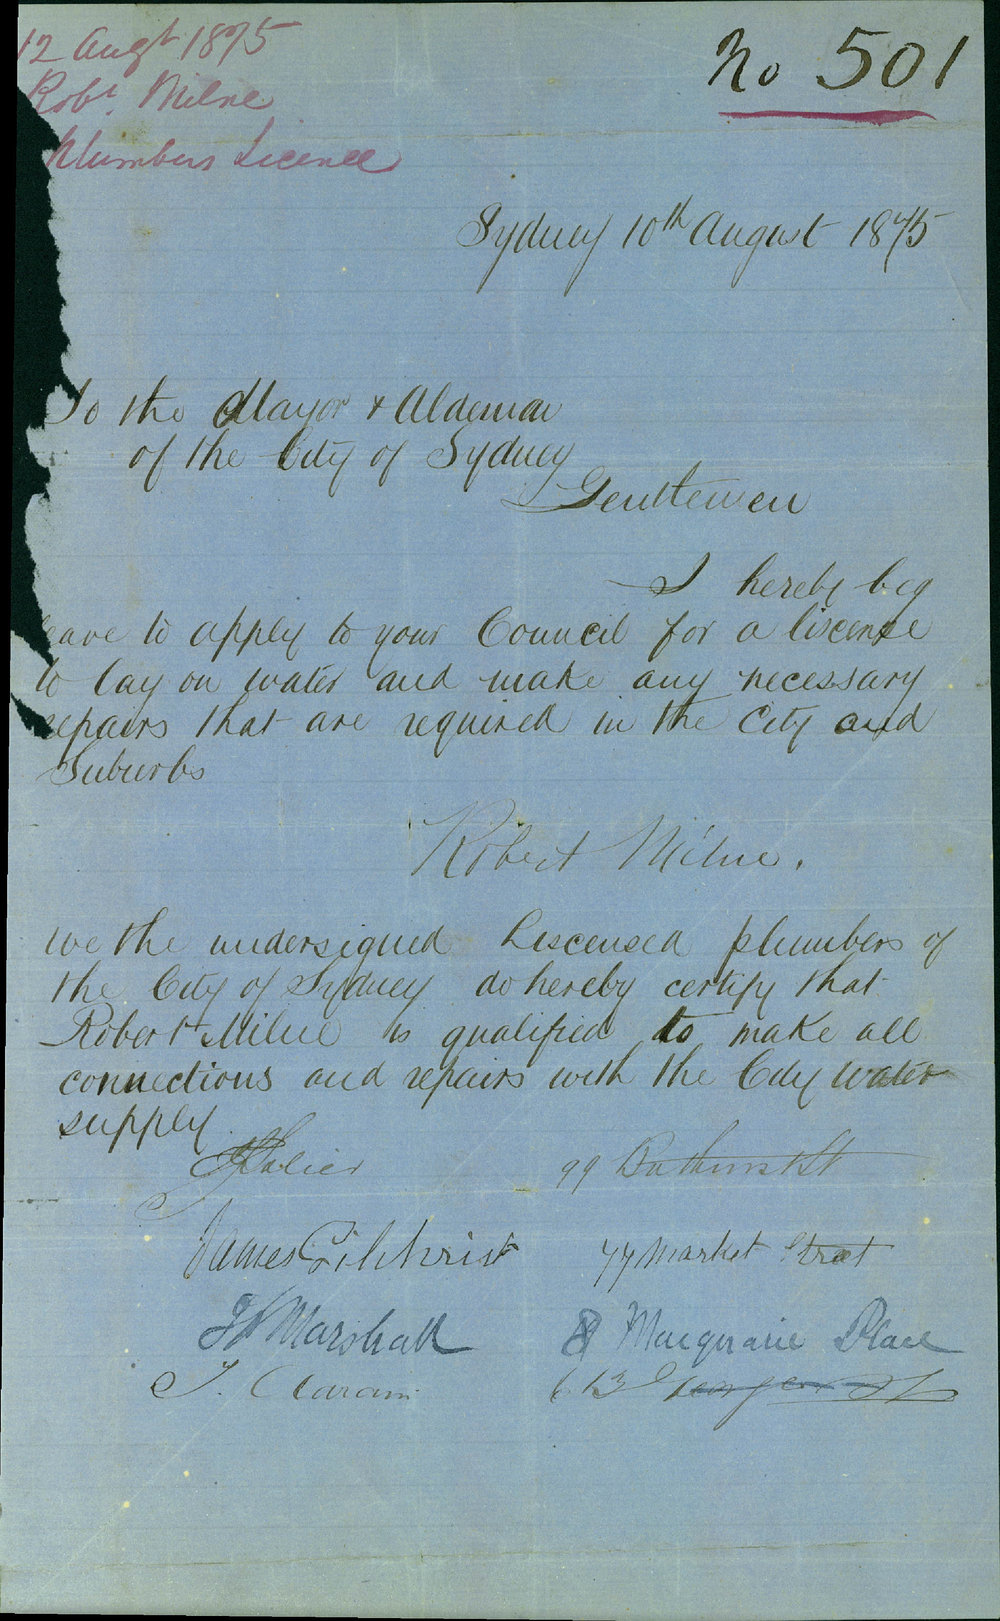 12 Augt 1875
Robt. Milne
Plumbers Licence
No 501
Sydney 10th August 1875
To the Mayor & Aldermen
of the City of Sydney
Gentlemen
I hereby beg
leave to apply to your Council for a liscense
to lay on water and make any necessary
repairs that are required in the City and
Suburbs
Robert Milne.
We the undersigned Liscensed plumbers of
the City of Sydney do hereby certify that
Robert Milne is qualified to make all
connections and repairs with the City water
supply
99 Bathurst St
James Gilchrist 77 Market Street
Marshall 8 Macquarie Place
613 George St